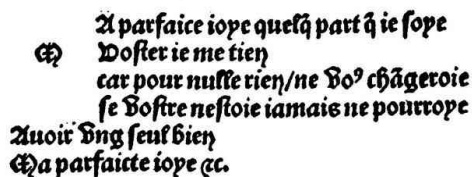 A parfaice ioye quelq̃ part q̃ ie soye
M Voster ie me tien
car pour nulle rien/ne voꝰ chãgeroie
se vostre nestoie iamais ne pourroye
Auoir vng seul bien
Ma parfaicte ioye ⁊c.